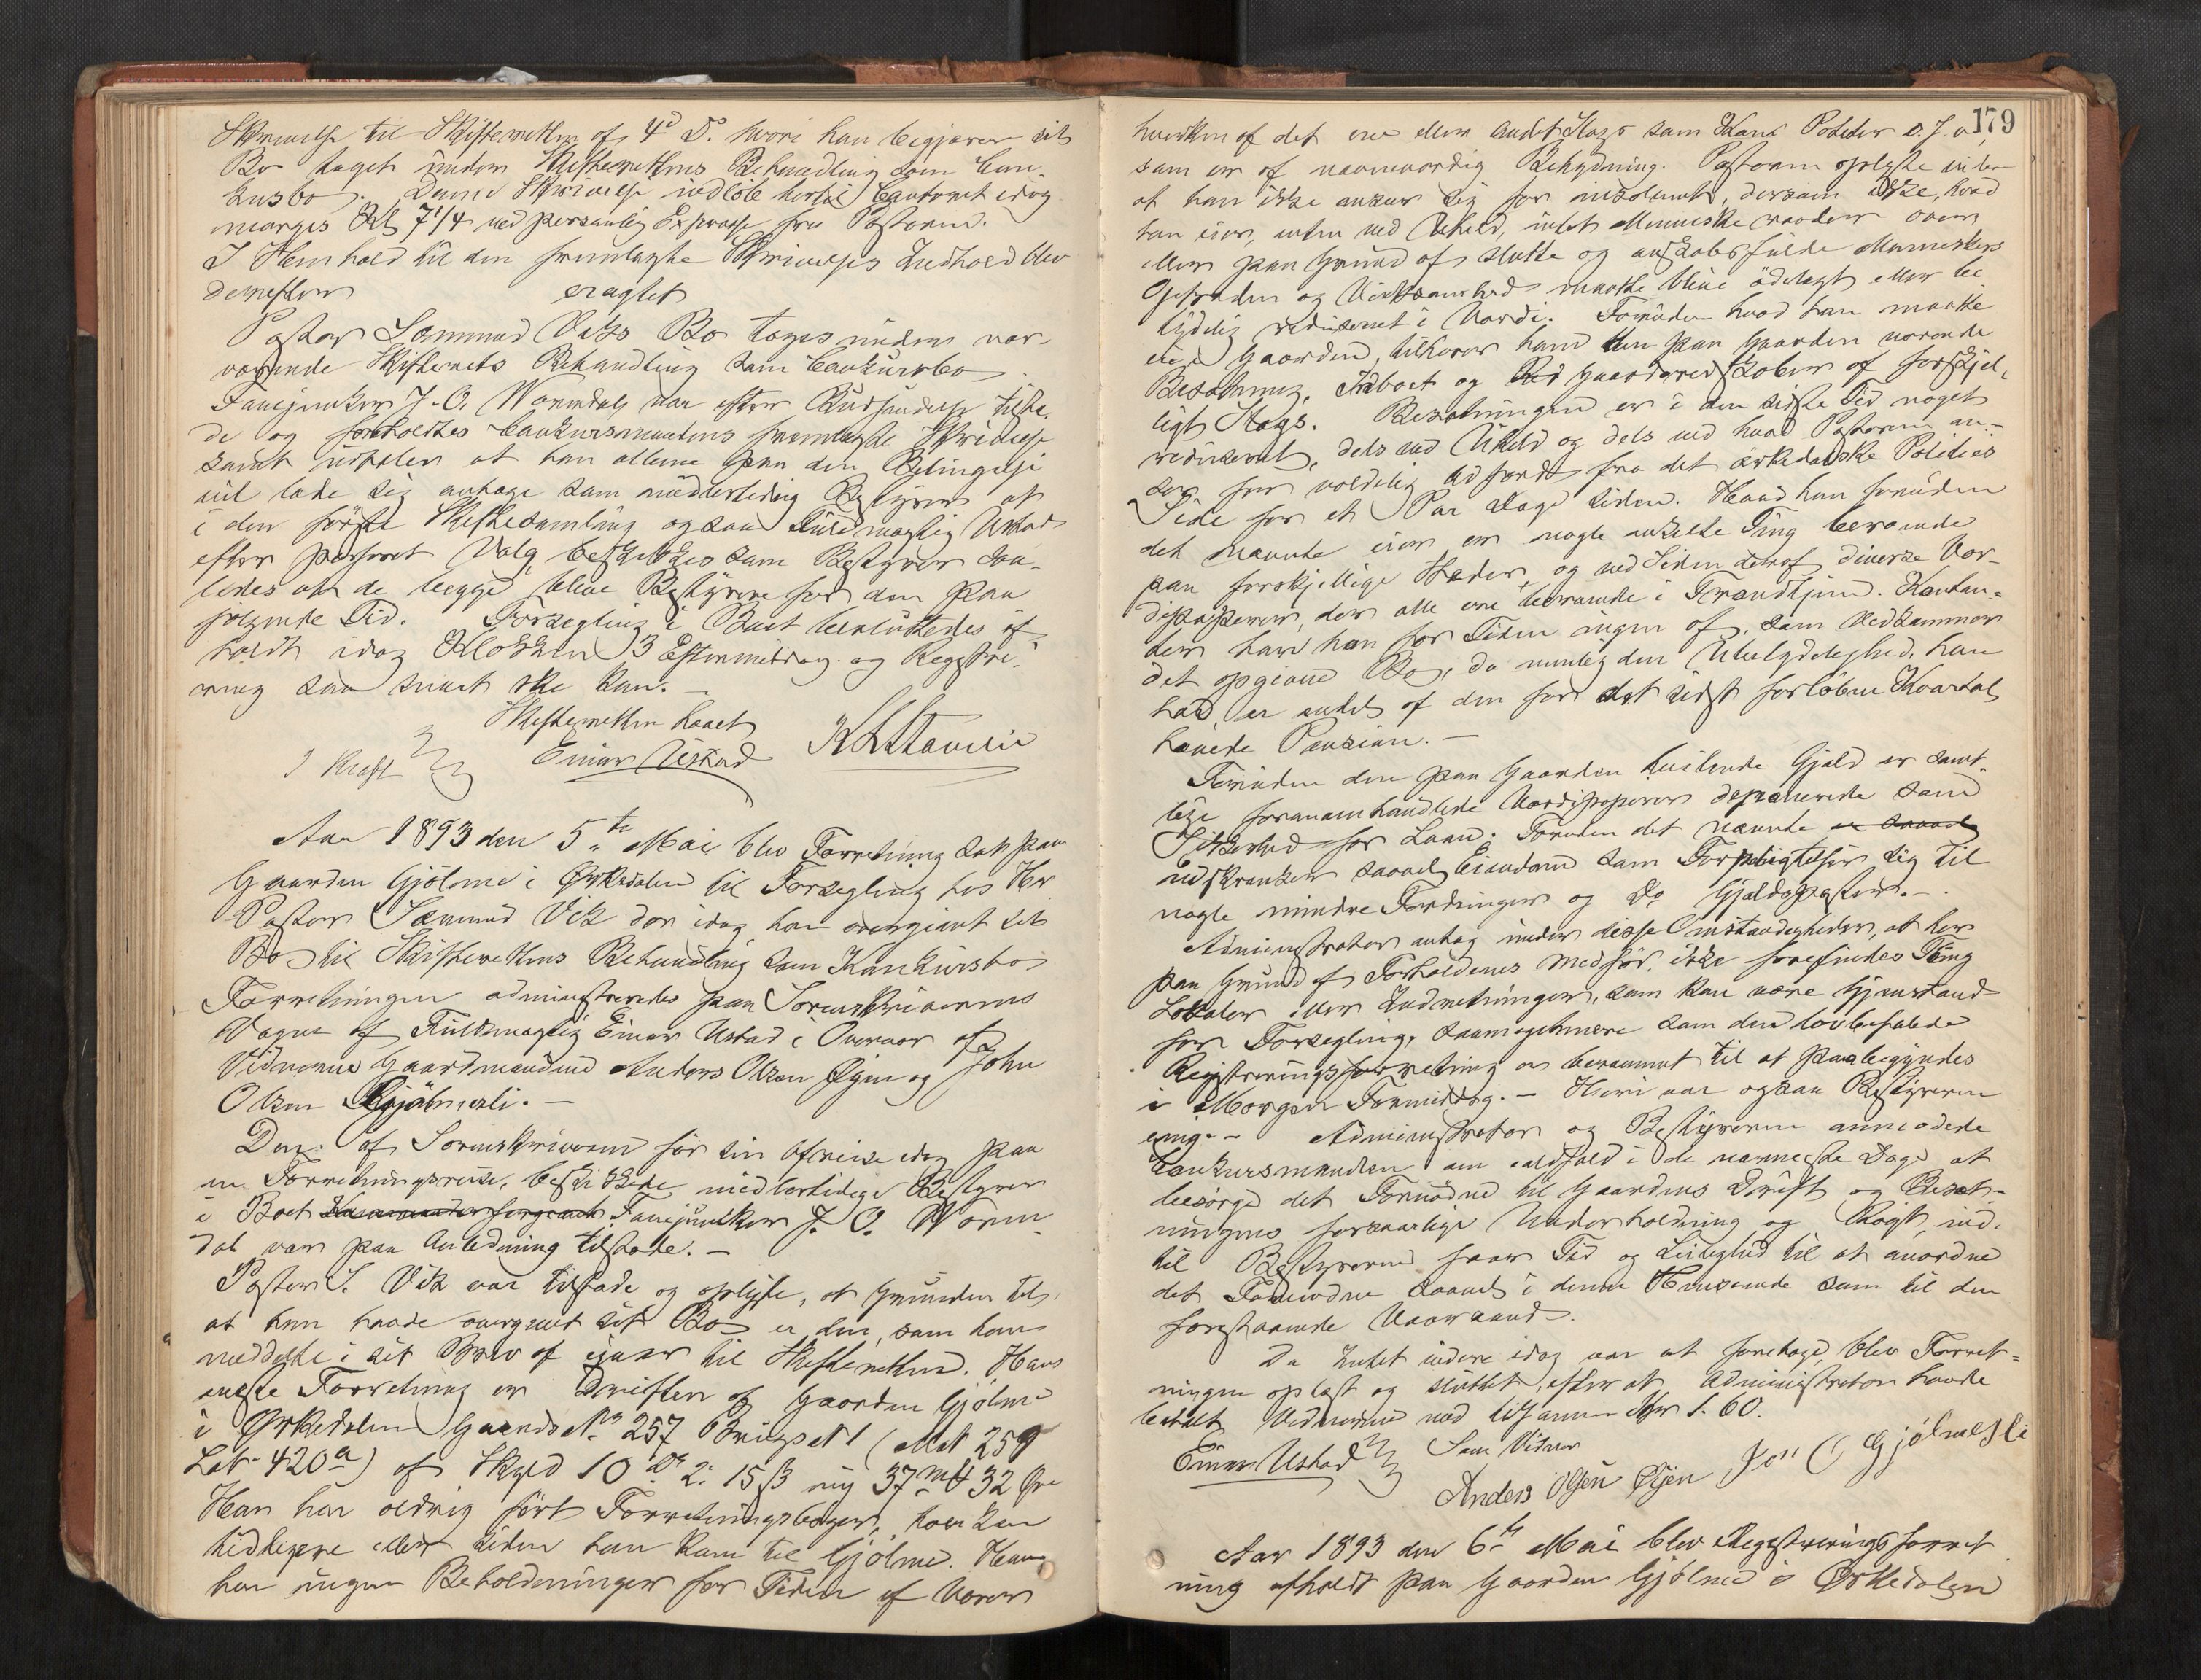 Skrivelse til Skifteretten af 4d ds. hvori han begjærer sit
Bo taget under Skifterettens Behandling som Con-
kursbo. Denne Skrivelse indløb hertil Contoret idag
morges Kl 7 1/4 ved personlig Expresse fra Pastoren.
I Henhold til den fremlagte Skrivelses Indhold blev
derefter eragtet
Pastor Sæmund Viks Bo tages under nær-
værende Skifterets Behandling som Concursbo.
Fanejunker J. O. Wormdal var efter Budsendelse tilste-
de og foreholdtes Concursmandens fremlagte Skrivelse
samt udtaler at han allene paa den Betingelse
vil lade sig antage som midlertidig Bestyrer at
i den første Skiftesamling ogsaa Fuldmægtig Ustad
efter Valg beskikkes som Bestyrer saa-
ledes at de begge blive Bestyrere for den paa
følgende Tid. Forsegling i Boet besluttedes af-
holdt idag Klokken 3 Eftermiddag og Registre-
ring saa snart ske kan.
Skifteretten hævet
I Kraft Einar Ustad
Aar 1893 den 5te Mai blev Forretning sat paa
Gaarden Gjølme i Ørkedalen til Forsegling hos Hr
Pastor Sæmund Vik der idag har overgivet sit
Bo til Skifterettens Behandling som Konkursbo
Forretningen administreredes paa Sorenskriverens
Vegne af Fuldmægtig Einar Ustad i Overvær af
Vidnerne Gaardmændene Anders Olsen Øyen og John
Olsen Gjølmesli.
Den af Sorenskriveren før sin Afreise idag paa
en Forretningsreise, beskikkede midlertidige Bestyrer
i Boet Fanejunker J. O. Worm-
dal var paa Anledning tilstede.
Pastor S. Vik var tilstede og oplyste, at Grunden til,
at han havde overgivet sit Bo er den, som han
meddelte i sit Brev af igaar til Skifteretten. Hans
eneste Forretning er Driften af Gaarden Gjølme
i Ørkedalen Gaards No 257 Brugs No 1 (Mat No 259
Lab. 420a) af Skyld 10 Dr 2. 15 ß ny 37 mk 32 Øre
Han har aldrig ført Forretningsbøger, hverken
tidligere eller siden han kom til Gjølme. Han
har ingen Beholdninger for Tiden af Varer
179
hverken af det ene eller andet Slags som Korn Poteter o. s. v.,
som er af nævneværdig Betydning. Pastoren oplyste videre
at han ikke anser sig for insolvent, dersom ikke, hvad
han eier, enten ved Uheld, intet Menneske raader over,
eller paa Grund af slette og ondskabsfulde Menneskers
Opførsel og Virksomhed maatte blive ødelagt eller be
tydelig reduceret i Værdi. Foruden hvad han maatte
eie i Gaarden, tilhører ham den paa Gaarden værende
Besætning, Indboet og Gaardsredskaber af forskjel-
ligt Slags. Besætningen er i den sidste Tid noget
reduceret, dels ved Uheld og dels ved hvad Pastoren an-
ser for voldelig Adfærd fra det ørkedalske Polities
Side for et Par Dage siden. Hvad han foruden
det nævnte eier er nogle enkelte Ting beroende
paa forskjellige Steder, og ved Siden deraf diverse Vær-
dipapirer, der alle ere beroende i Trondhjem. Kontan-
ter har han for Tiden ingen af, som vedkommer
det opgivne Bo, da nemlig den Ubetydelighed, han
har, er endel af den for det sidst forløbne Kvartal
hævede Pension.
Foruden den paa Gaarden heftende Gjæld er samt-
lige foranomhandlede Værdipapirer deponerede som
Sikkerhed for Laan. Foruden det nævnte
indskrænker saavel Eiendom som Forpligtelser sig til
nogle mindre Fordringer og Do Gjældsposter.
Administrator antog under disse Omstændigheder, at her
paa Grund af Forholdenes Medfør, ikke forefindes Ting
Lokaler eller Indretninger, som kan være Gjenstand
for Forsegling, saameget mere som den lovbefalede
Registreringsforretning er berammet til at paabegyndes
i Morgen Formiddag. Heri var ogsaa Bestyreren
enig. Administrator og Bestyreren anmodede
Concursmanden om ialdfald i de nærmeste Dage at
besørge det Fornødne til Gaardens Drift og Besæt-
ningens forsvarlige Underholdning og Røgt, ind-
til Bestyreren faar Tid og Leilighed til at anordne
det Fornødne saavel i denne Henseende som til den
forestaaende Vaaraand.
Da Intet videre idag var at foretage, blev Forret-
ningen oplæst og sluttet, efter at Administrator havde
betalt Vidnerne med tilsammen Kr 1.60.
Einar Ustad Som Vidner
Anders Olsen Øien Jon O Gjølmesli
Aar 1893 den 6te Mai blev Registreringsforret
ning afholdt paa Gaarden Gjølme i Ørkedalen